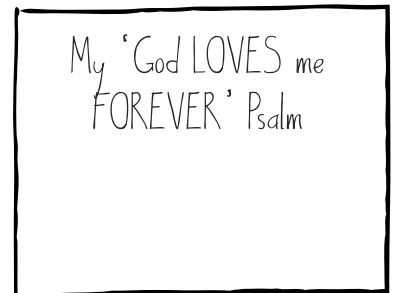 My ‘God LOVES me
FOREVER’ Psalm